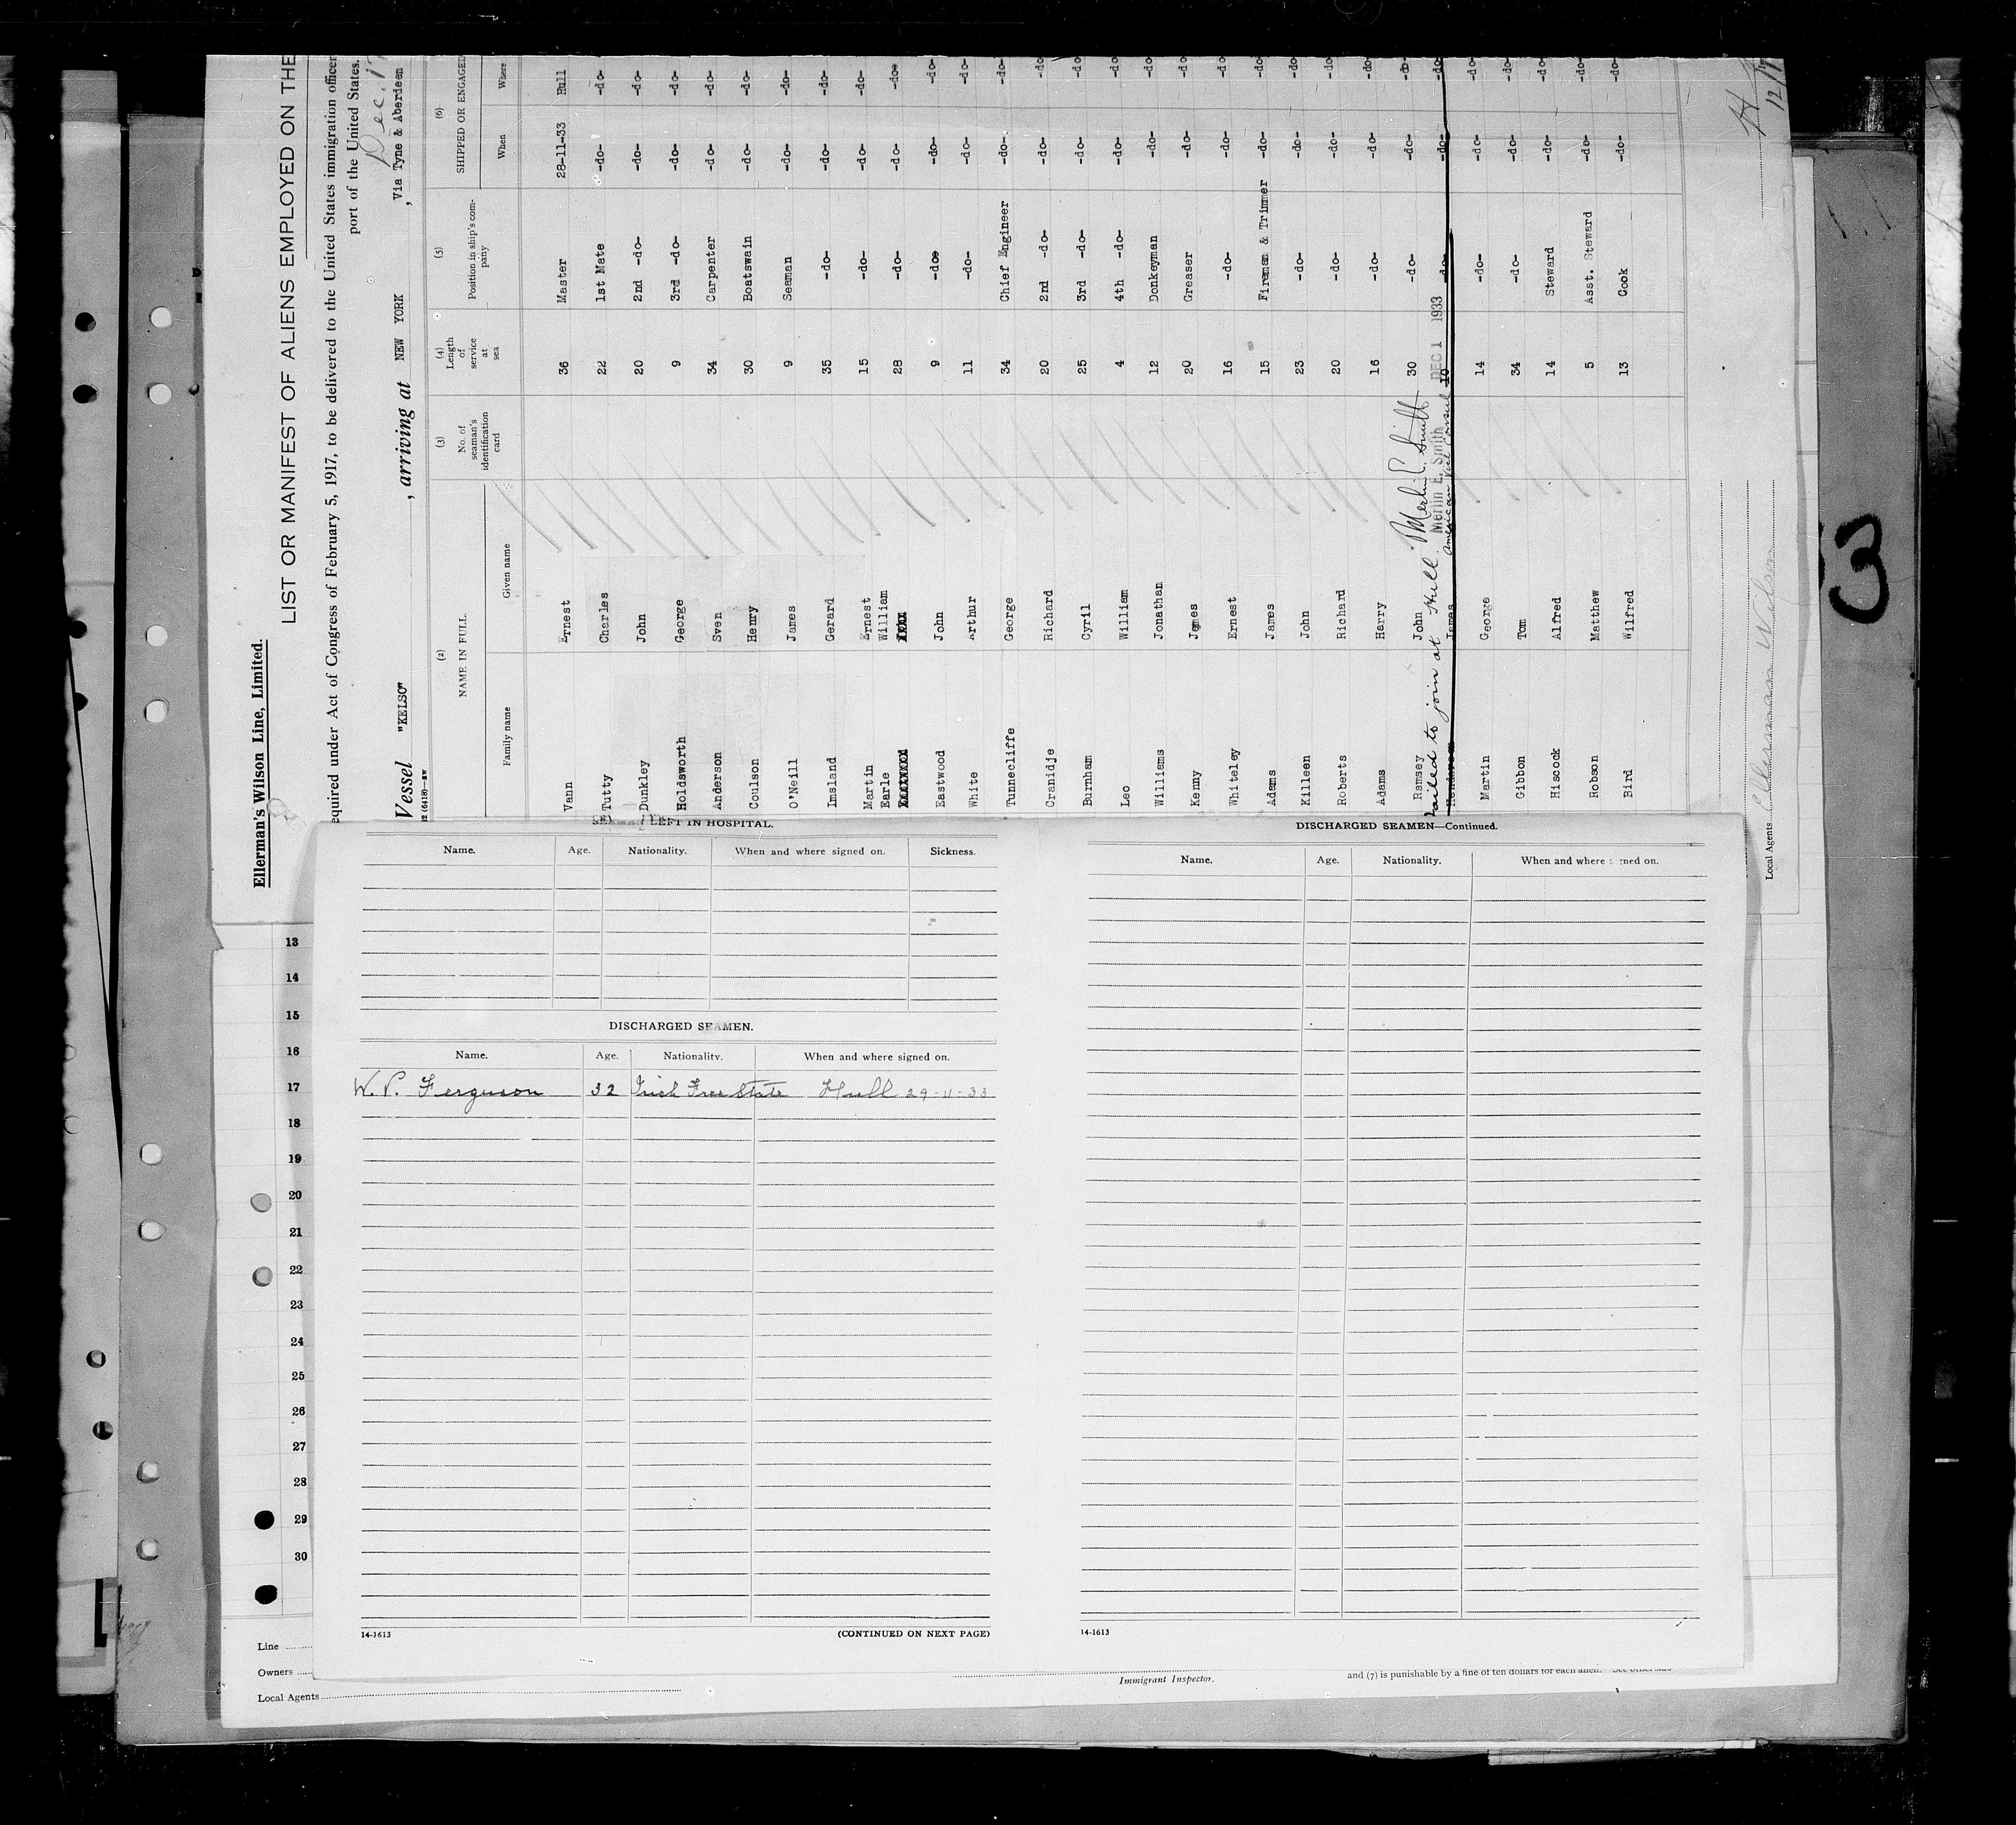 Ellerman's Wilson Line, Limited.
LIST OR MANIFEST OF ALIENS EMPLOYED ON THE
equired under Act of Congress of February 5, 1917, to be delivered to the United States immigration officer
port of the United States.
Vessel "KELSO" , arriving at NEW YORK , Via Tyne & Aberdeen
(2) (3) (4) (5) (6)
NAME IN FULL No. of seaman's identification card Length of service at sea Position in ship's com-pany SHIPPED OR ENGAGED
Family name Given name When Where
Vann Ernest 36 Master 28-11-33 Hull
Tutty Charles 22 1st Mate -do- -do-
Dunkley John 20 2nd -do- -do- -do-
Holdsworth George 9 3rd -do- -do- -do-
Anderson Sven 34 Carpenter -do- -do-
Coulson Henry 30 Boatswain -do- -do-
O'Neill James 9 Seaman -do- -do-
Imsland Gerard 35 -do- -do- -do-
Martin Ernest 15 -do- -do- -do-
Earle William 28 -do- -do- -doe
Eastwood John 9 -doe -do- -do-
White Arthur 11 -do- -do- -do-
Tunnecliffe George 34 Chief Engineer -do- -do-
Cranidje Richard 20 2nd -do- -do- -do
Burnham Cyril 25 3rd -do- -do- -do
Leo William 4 4th -do- -do- -do
Williams Jonathan 12 Donkeyman -do- -do
Kenny James 20 Greaser -do- -do
Whiteley Ernest 16 -do- -do- -do
Adams James 15 Fireman & Trimmer -do- -do
Killeen John 23 -do- -do- -do
Roberts Richard 20 -do- -do- -do
Adams Harry 16 -do- -do- -do
Ramsey John 30 -do- -do- -do
Failed to join at Hull. Merlin E. Smith
Merlin E. Smith DEC 1 1933
American Vice Consul
Henderson James 10 -do- -do- -do
Martin George 14 -do- -do- -do
Gibbon Tom 34 -do- -do- -do
Hiscock Alfred 14 Steward -do- -do
Robson Matthew 5 Asst. Steward -do- -do
Bird Wilfred 13 Cook -do- -do
Local Agents Ellerman Wilson
SEAMEN LEFT IN HOSPITAL.
Name. Age. Nationality. When and where signed on. Sickness.
DISCHARGED SEAMEN.
Name. Age. Nationality. When and where signed on.
W. P. Ferguson 32 Irish Free State Hull 29-11-33
14-1613 (CONTINUED ON NEXT PAGE)
DISCHARGED SEAMEN—Continued.
Name. Age. Nationality. When and where signed on.
14-1613
13
14
15
16
17
18
19
20
21
22
23
24
25
26
27
28
29
30
Line
Owners
Local Agents
Immigrant Inspector.
and (7) is punishable by a fine of ten dollars for each alien. See other side
3